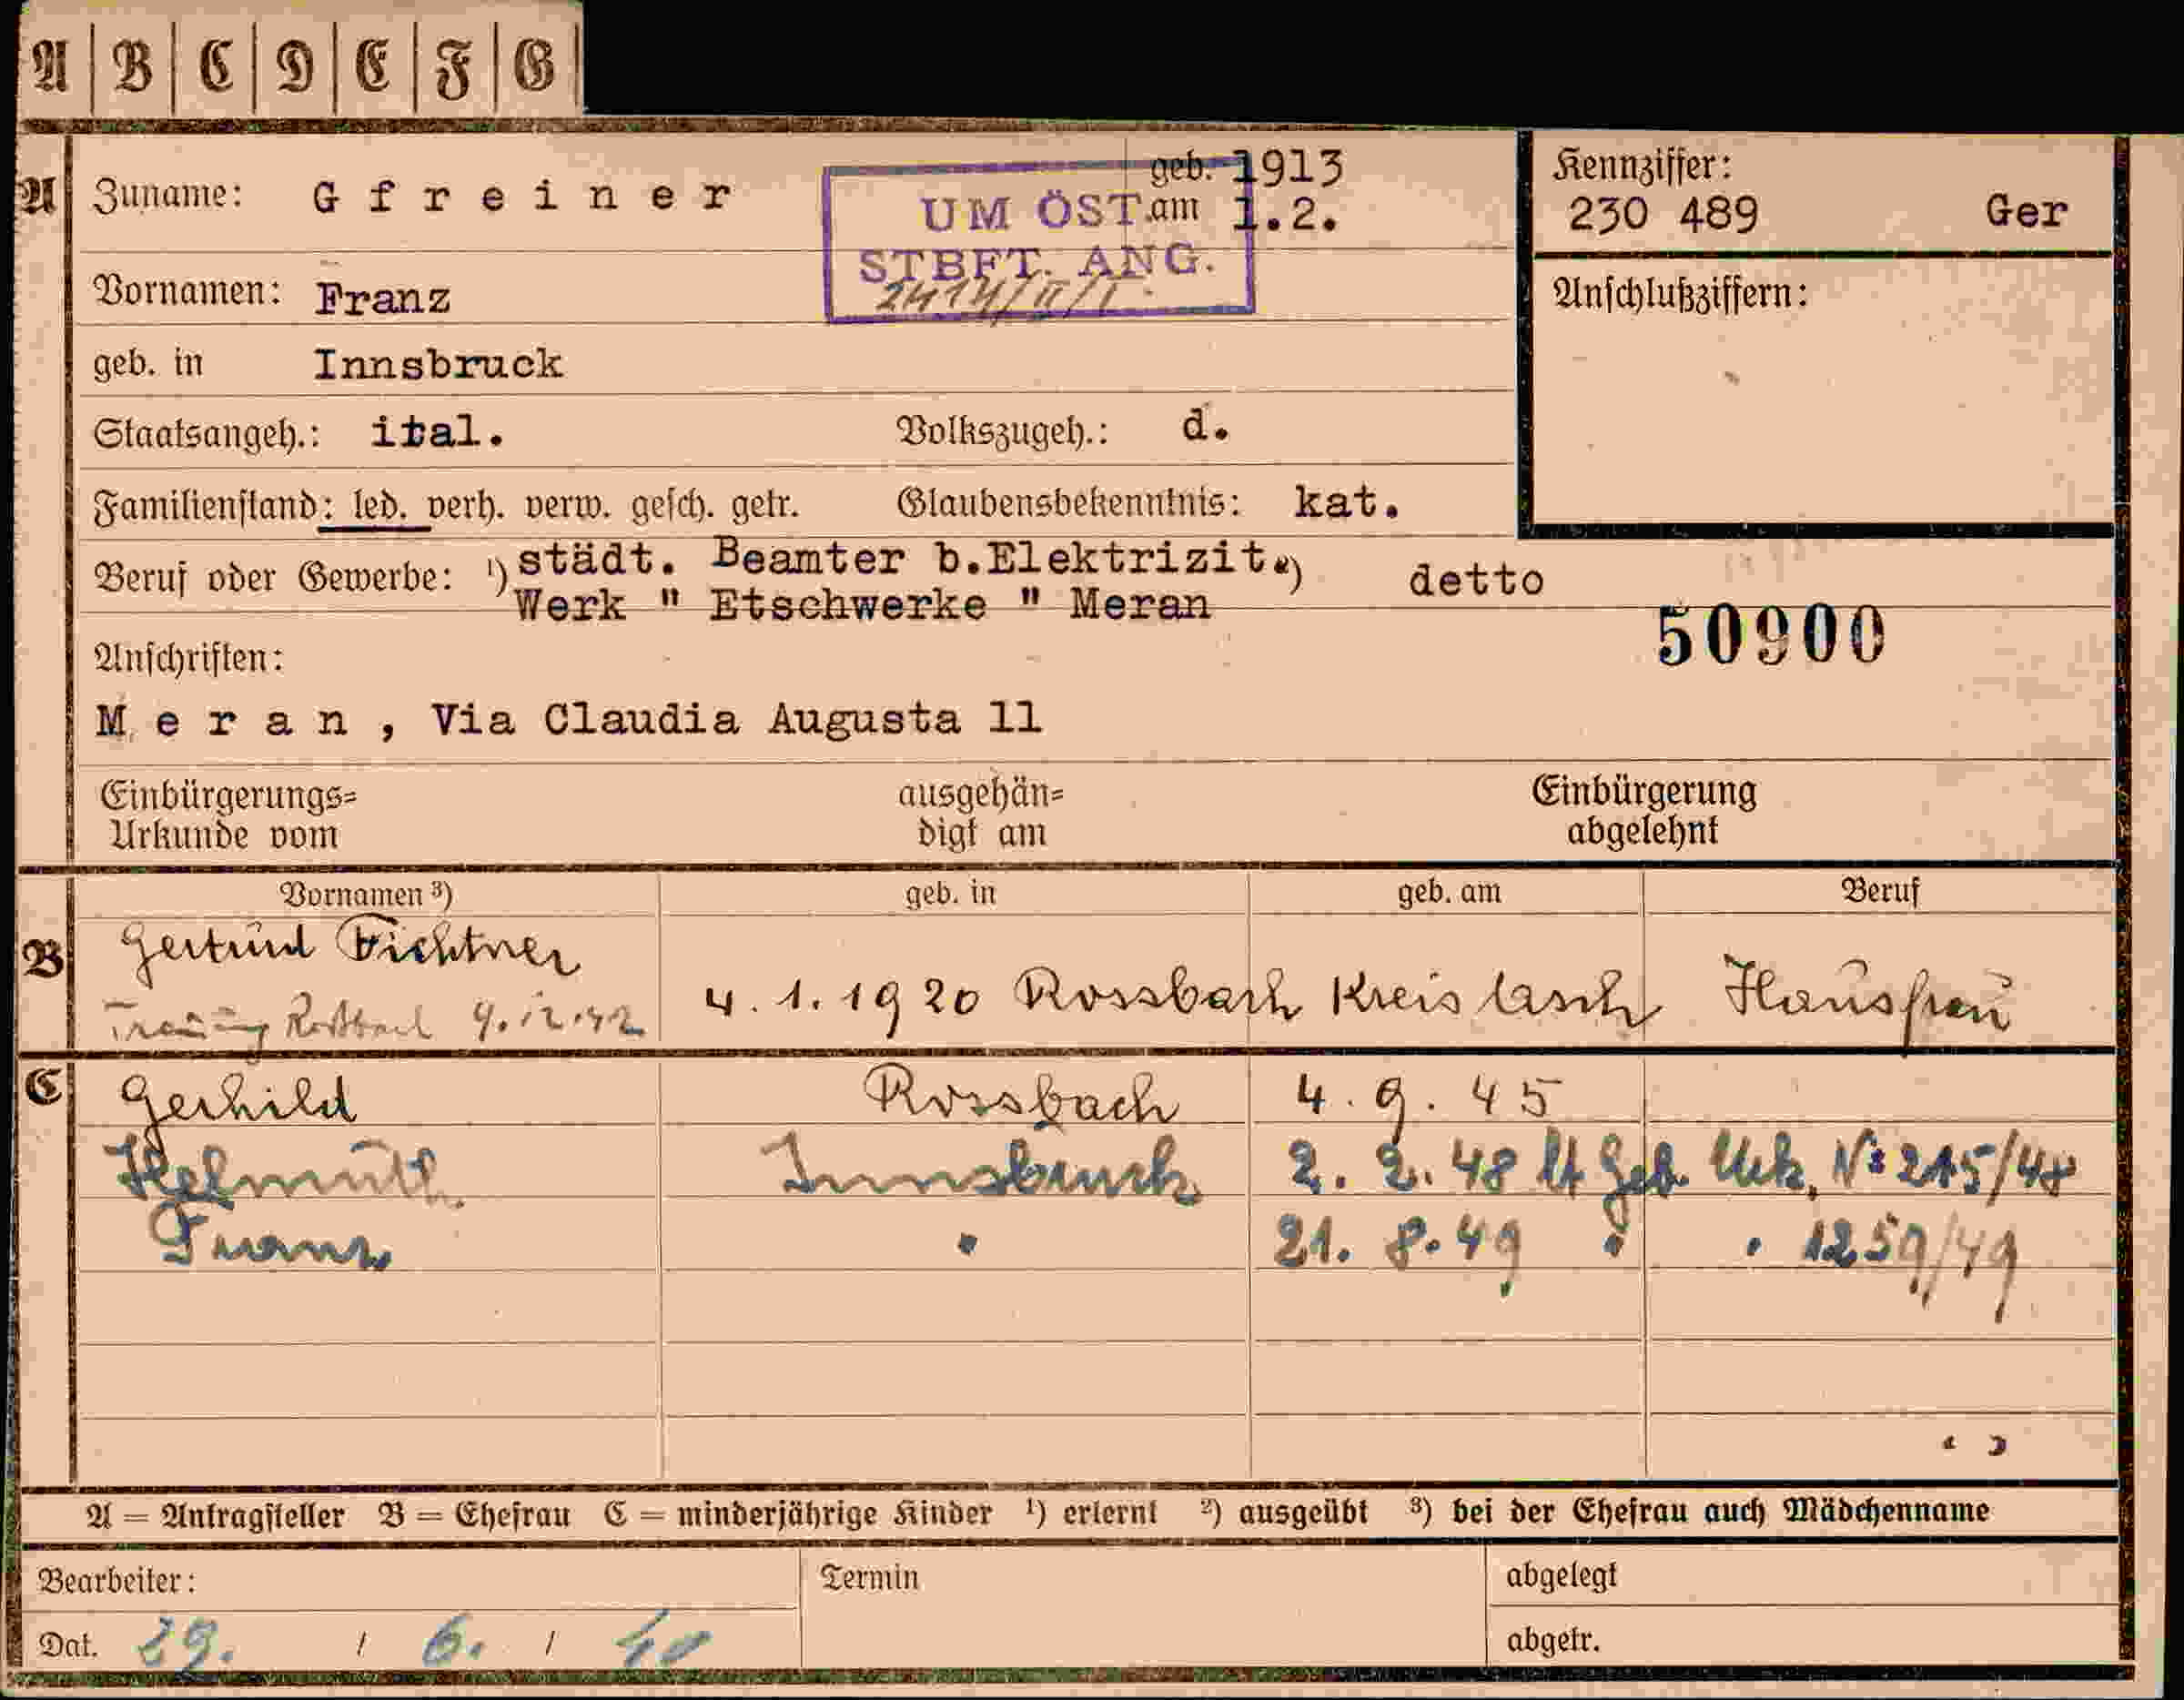 A B C D E F G
A Zuname: Gfreiner geb. 1913
am 1.2.
UM ÖST.
STBFT. ANG.
2414/II/1.
Kennziffer:
230 489 Ger
Vornamen: Franz
Anschlußziffern:
geb. in Innsbruck
Staatsangeh.: ital. Volkszugeh.: d.
Familienstand: led. verh. verw. gesch. getr. Glaubensbekenntnis: kat.
Beruf oder Gewerbe: ¹) städt. Beamter b.Elektrizit. ²) detto
Werk " Etschwerke " Meran
50900
Anschriften:
Meran, Via Claudia Augusta 11
Einbürgerungs= ausgehän= Einbürgerung
Urkunde vom digt am abgelehnt
Vornamen ³) geb. in geb. am Beruf
B Gertrud Fichtner
4.1.1920 Rossbach Kreis Hausfrau
Trauung Roßbach 9.12.42
C Gerhild Rossbach 4.9.45
Helmuth Innsbruck 2.2.48 lt Geb. Urk. Nr 215/48
Franz " 21.8.49 " " 1259/49
A = Antragsteller B = Ehefrau C = minderjährige Kinder ¹) erlernt ²) ausgeübt ³) bei der Ehefrau auch Mädchenname
Bearbeiter: Termin abgelegt
Dat. 29. / 6. / 40 abgetr.